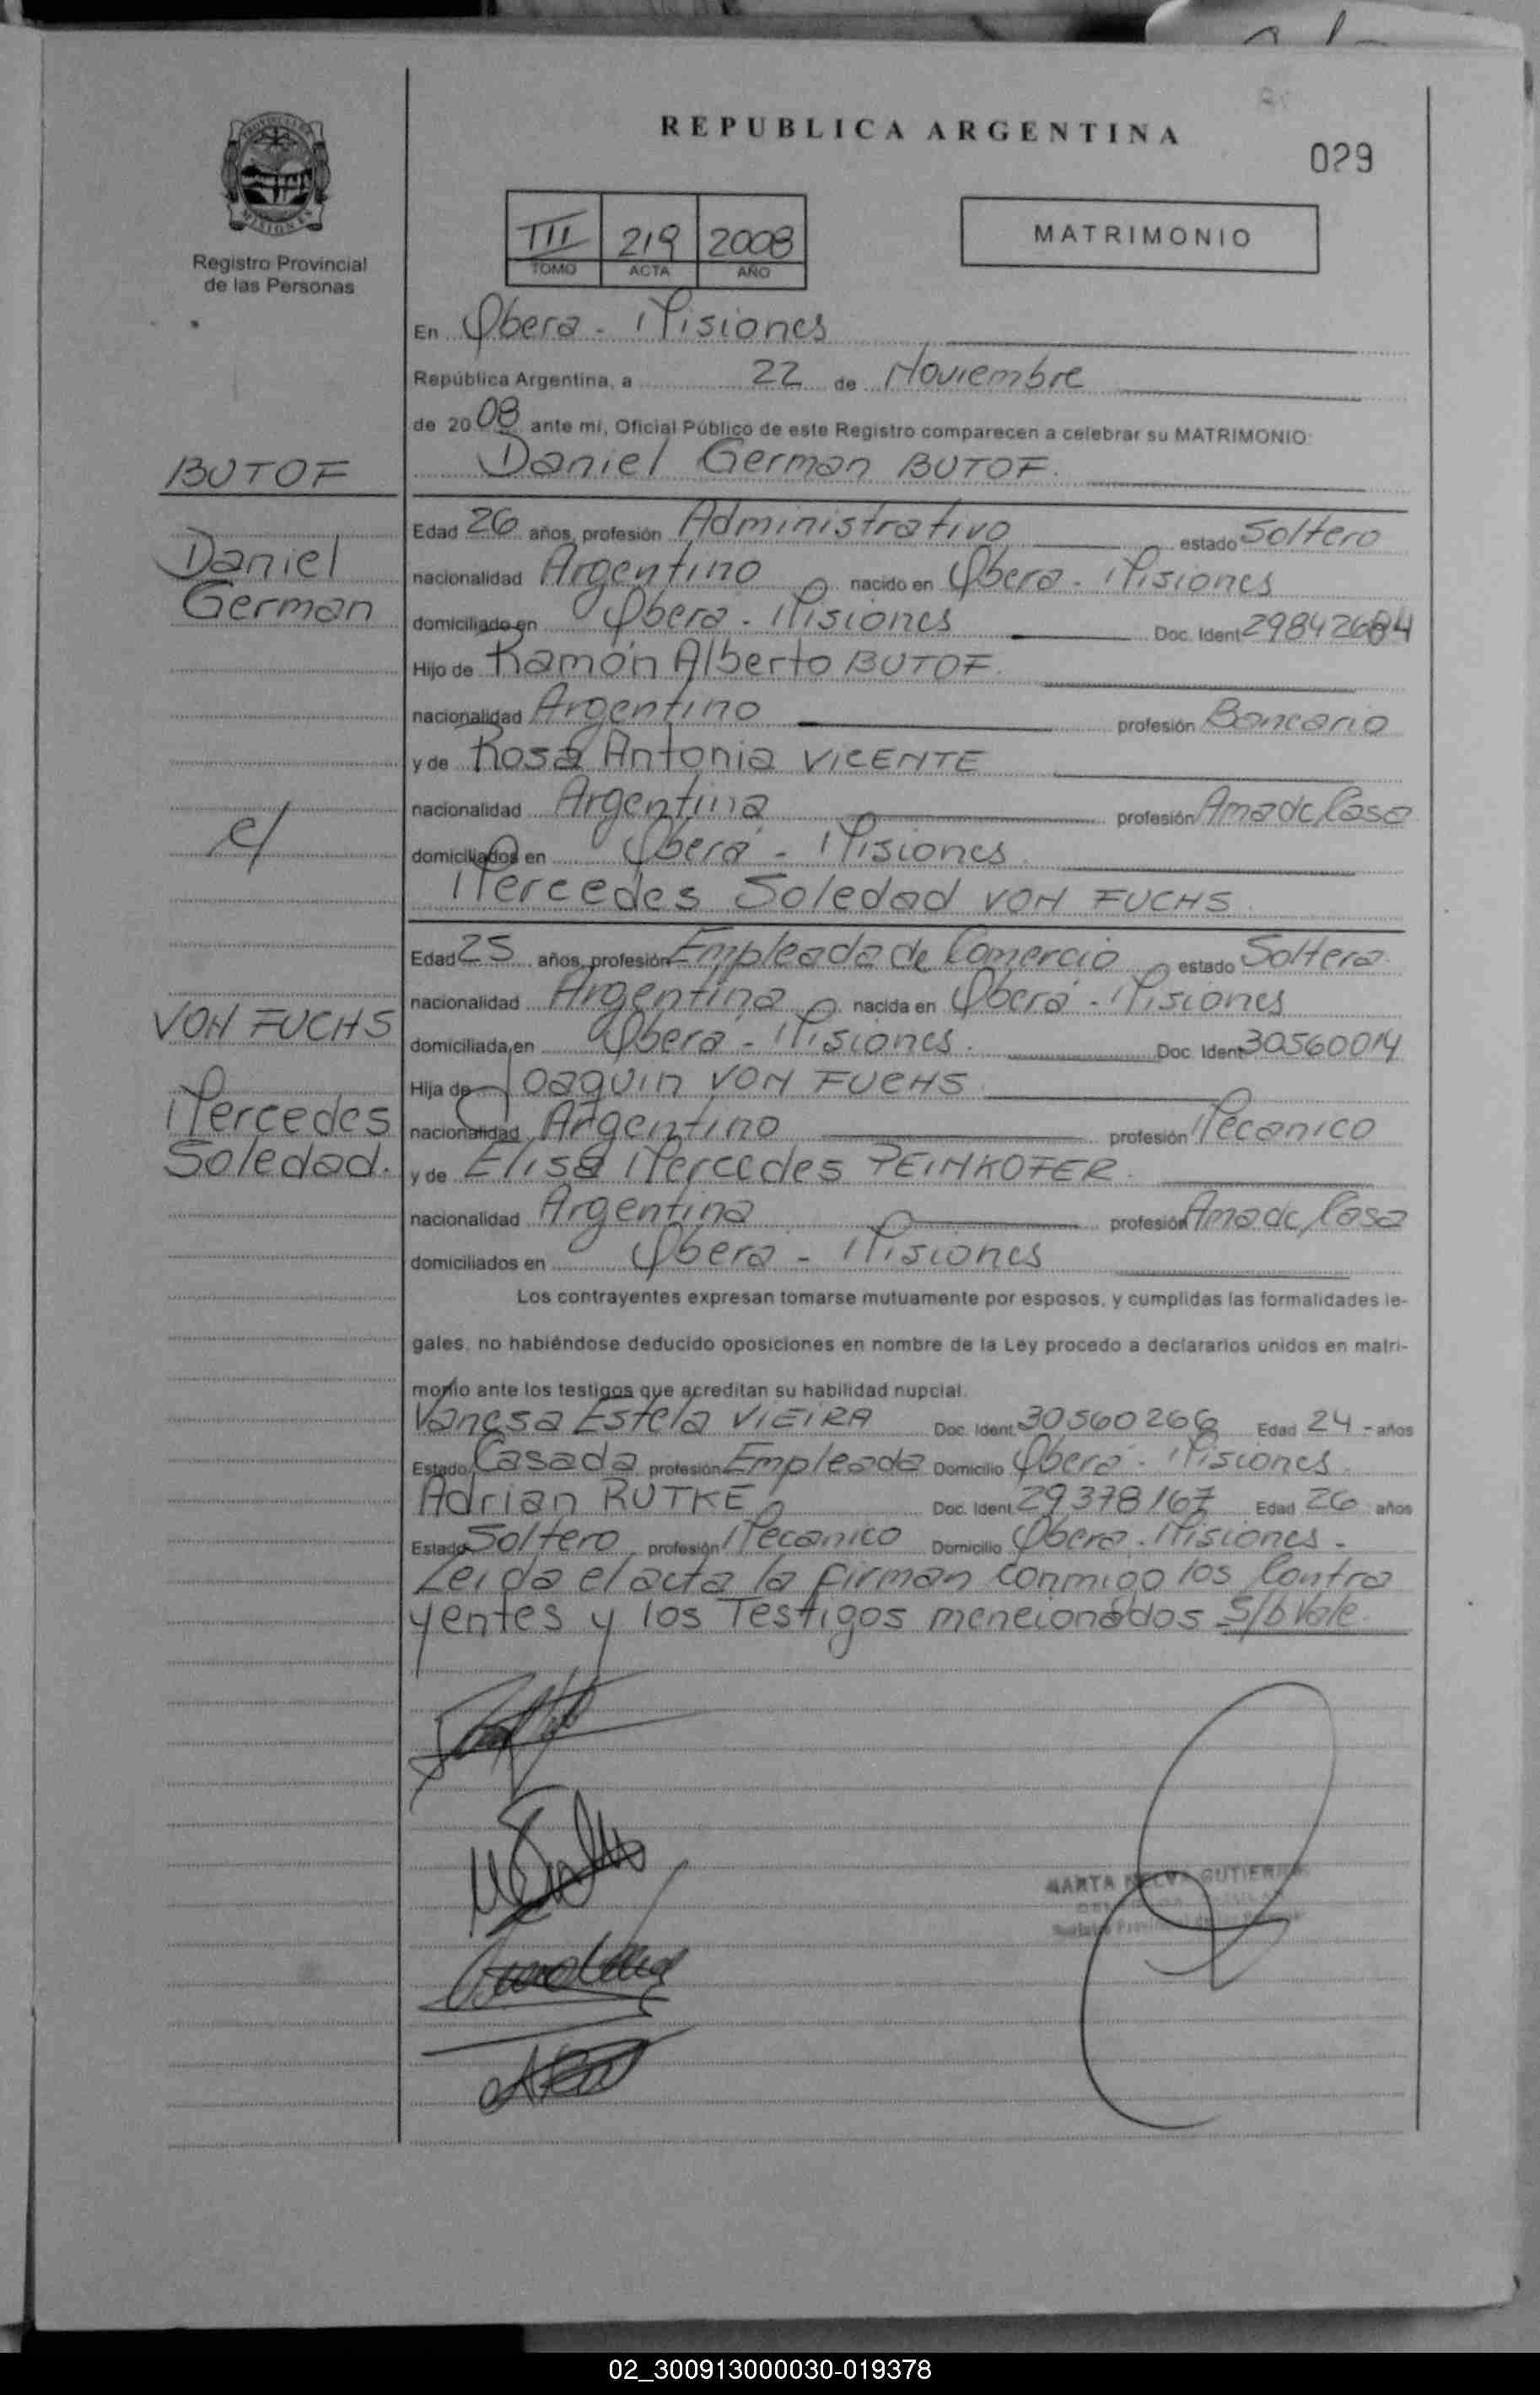 REPUBLICA ARGENTINA
029
Registro Provincial
de las Personas
III 219 2008
TOMO ACTA AÑO
MATRIMONIO
En Obera - Misiones
República Argentina, a 22 de Noviembre
de 2008 ante mí, Oficial Público de este Registro comparecen a celebrar su MATRIMONIO:
BUTOF
Daniel German BUTOF.
Edad 26 años, profesión Administrativo estado Soltero
Daniel
nacionalidad Argentino nacido en Obera - Misiones
German
domiciliado en Obera - Misiones Doc. Ident 29842684
Hijo de Ramón Alberto BUTOF.
nacionalidad Argentino profesión Bancario
y de Rosa Antonia VICENTE
nacionalidad Argentina profesión Ama de Casa
c/
domiciliados en Obera - Misiones
Mercedes Soledad VON FUCHS
Edad 25 años, profesión Empleada de Comercio estado Soltera
nacionalidad Argentina nacida en Obera - Misiones
VON FUCHS
domiciliada en Obera - Misiones. Doc. Ident 30560014
Hija de Joaquin VON FUCHS
Mercedes
nacionalidad Argentino profesión Mecanico
Soledad.
y de Elisa Mercedes PEINKOFER.
nacionalidad Argentina profesión Ama de Casa
domiciliados en Obera - Misiones
Los contrayentes expresan tomarse mutuamente por esposos, y cumplidas las formalidades le-
gales, no habiéndose deducido oposiciones en nombre de la Ley procedo a declararlos unidos en matri-
monio ante los testigos que acreditan su habilidad nupcial.
Vanesa Estela VIEIRA Doc. Ident. 30560266 Edad 24 - años
Estado Casada profesión Empleada Domicilio Obera - Misiones.
Adrian RUTKE Doc. Ident. 29378167 Edad 26 años
Estado Soltero profesión Mecanico Domicilio Obera - Misiones -
Leida el acta la firman conmigo los Contra
yentes y los Testigos mencionados S/b Vale
MARTA GUTIERREZ
02_300913000030-019378